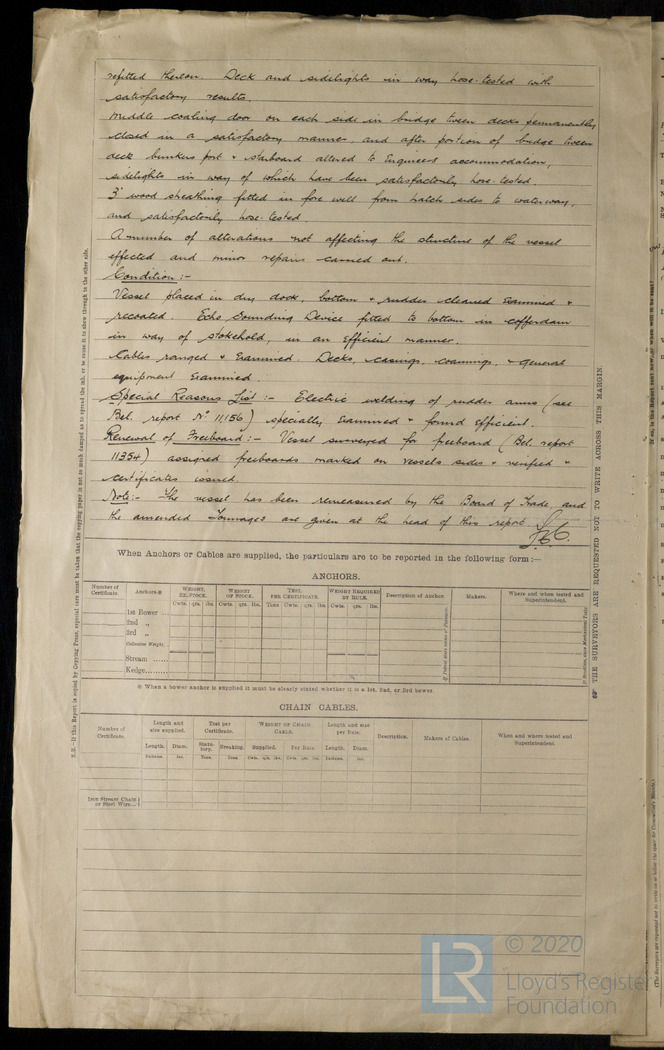 refitted thereon. Deck and sidelights in way hose-tested with
satisfactory results.
Middle coaling door on each side in bridge tween decks permanently
closed in a satisfactory manner, and after portion of bridge tween
deck bunkers port & starboard altered to Engineers accommodation,
sidelights in way of which have been satisfactorily hose-tested.
3" wood sheathing fitted in fore well from hatch sides to waterway,
and satisfactorily hose-tested.
A number of alterations not affecting the structure of the vessel
effected and minor repairs carried out.
Condition:-
Vessel placed in dry dock, bottom & rudder cleaned examined &
recoated. Echo Sounding Device fitted to bottom in cofferdam
in way of stokehold, in an efficient manner.
Cables ranged & examined. Decks, casings, coamings, & general
equipment examined.
Special Reasons List:- Electric welding of rudder arms (see
Bel. report No 11,156) specially examined & found efficient.
Renewal of Freeboard:- Vessel surveyed for freeboard (Bel. report
11354) assigned freeboards marked on vessels sides & verified &
certificates issued.
Note:- The vessel has been remeasured by the Board of Trade, and
the amended Tonnages are given at the head of this report.
When Anchors or Cables are supplied, the particulars are to be reported in the following form:—
ANCHORS.
Number of Certificate. Anchors.※ WEIGHT, EX. STOCK. WEIGHT OF STOCK. TEST, PER CERTIFICATE. WEIGHT REQUIRED BY RULE. Description of Anchor. Makers. Where and when tested and Superintendent.
Cwts. qrs. lbs. Cwts. qrs. lbs. Tons Cwts. qrs. lbs. Cwts. qrs. lbs.
1st Bower ...
2nd „
3rd „
Collective Weight
Stream ......
Kedge........
※ When a bower anchor is supplied it must be clearly stated whether it is a 1st, 2nd, or 3rd bower.
CHAIN CABLES.
Number of Certificate. Length and size supplied. Test per Certificate. WEIGHT OF CHAIN CABLE. Length and size per Rule. Description. Makers of Cables. When and where tested and Superintendent.
Length. Diam. Statutory. Breaking. Supplied. Per Rule. Length. Diam.
Fathoms. Ins. Tons. Tons. Cwts. qrs. lbs. Cwts. qrs. lbs. Fathoms. Ins.
Iron Stream Chain
or Steel Wire
N.B.—If this Report is copied by Copying Press, especial care must be taken that the copying paper is not so much damped as to spread the ink, or to cause it to show through to the other side.
THE SURVEYORS ARE REQUESTED NOT TO WRITE ACROSS THIS MARGIN.
LR
© 2020
Lloyd's Register
Foundation